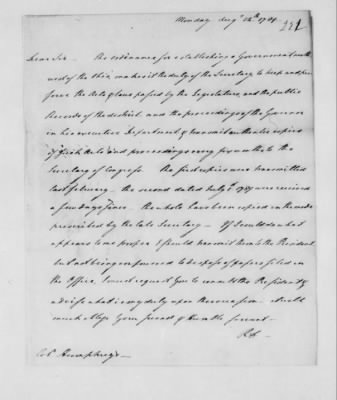 Monday Augt 24th 1789
221
Dear Sir The ordinance for establishing a Government north
west of the Ohio, makes it the duty of the Secretary to keep and pre
serve the Acts & laws passed by the Legislature, and the public
Records of the district and the proceedings of the Governor
in his executive Department & transmit authentic copies
of such Acts and proceedings every six months to the
Secretary of Congress The first copies were transmitted
last february the second dated July 1789 were received
a few days since the whole have been copied in the mode
prescribed by the late Secretary If I could do what
appears to me proper I should transmit them to the President
but not being empowered to dispose of papers filed in
the Office, I must request you to consult the President &
advise what is my duty upon the occasion
much oblige Your friend & humble servant
Colo Humphreys